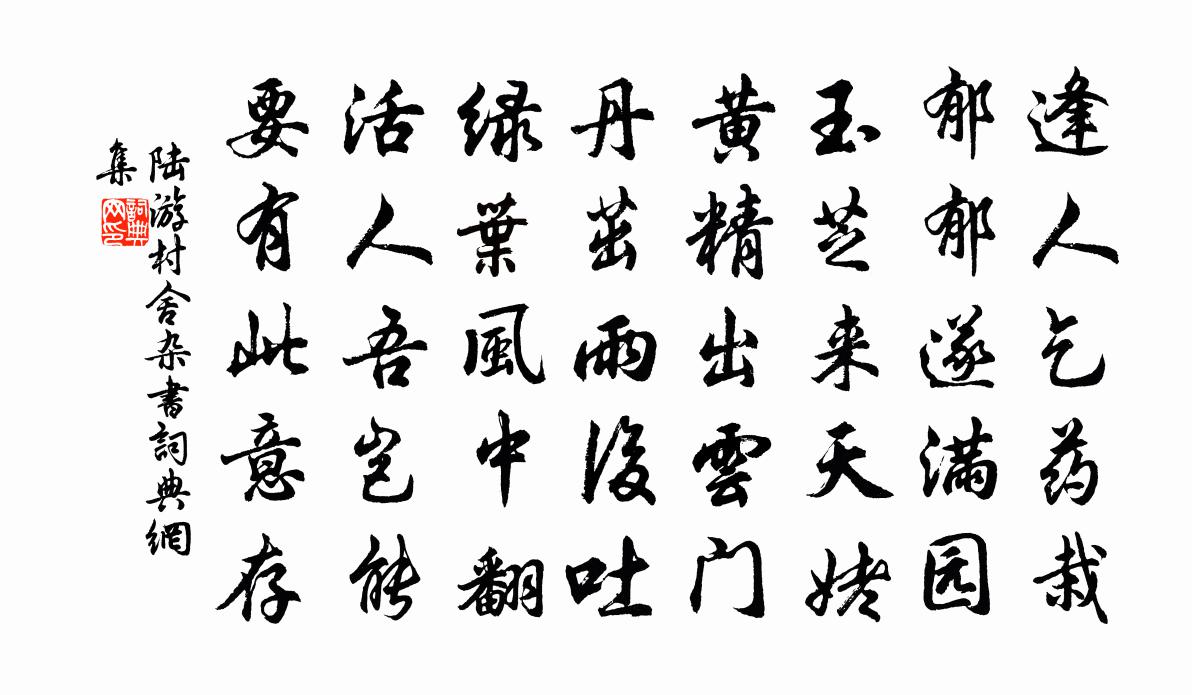 逢人乞药栽
郁郁遂满园
玉芝来天姥
黄精出雲门
丹茁雨後吐
绿葉風中翻
活人吾岂能
要有此意存
陆游村舍杂書詞典網
集
詞典
网印